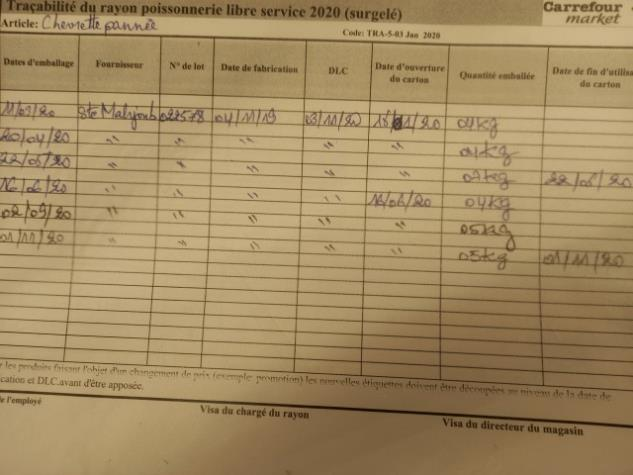 Traçabilité du rayon poissonnerie libre service 2020 (surgelé)
Carrefour market
Article: Chevrette pannée
Code: TRA-5-03 Jan 2020
Dates d'emballage Fournisseur N° de lot Date de fabrication DLC Date d'ouverture du carton Quantité emballée Date de fin d'utilis du carton
11/03/20 Sté Mahjoub 022578 04/11/19 03/11/20 /20 04kg
20/04/20 " " " " " 04kg
22/06/20 " " " " " 07kg 22/06/20
16/06/20 " " " " 16/06/20 04kg
02/09/20 " " " " " 05kg
01/11/20 " " " " " 05kg 01/11/20
r les produits faisant l'objet d'un changement de prix (exemple: promotion) les nouvelles étiquettes doivent être découpées au niveau de la date de
cation et DLC.avant d'être apposée.
e l'employé Visa du chargé du rayon Visa du directeur du magasin